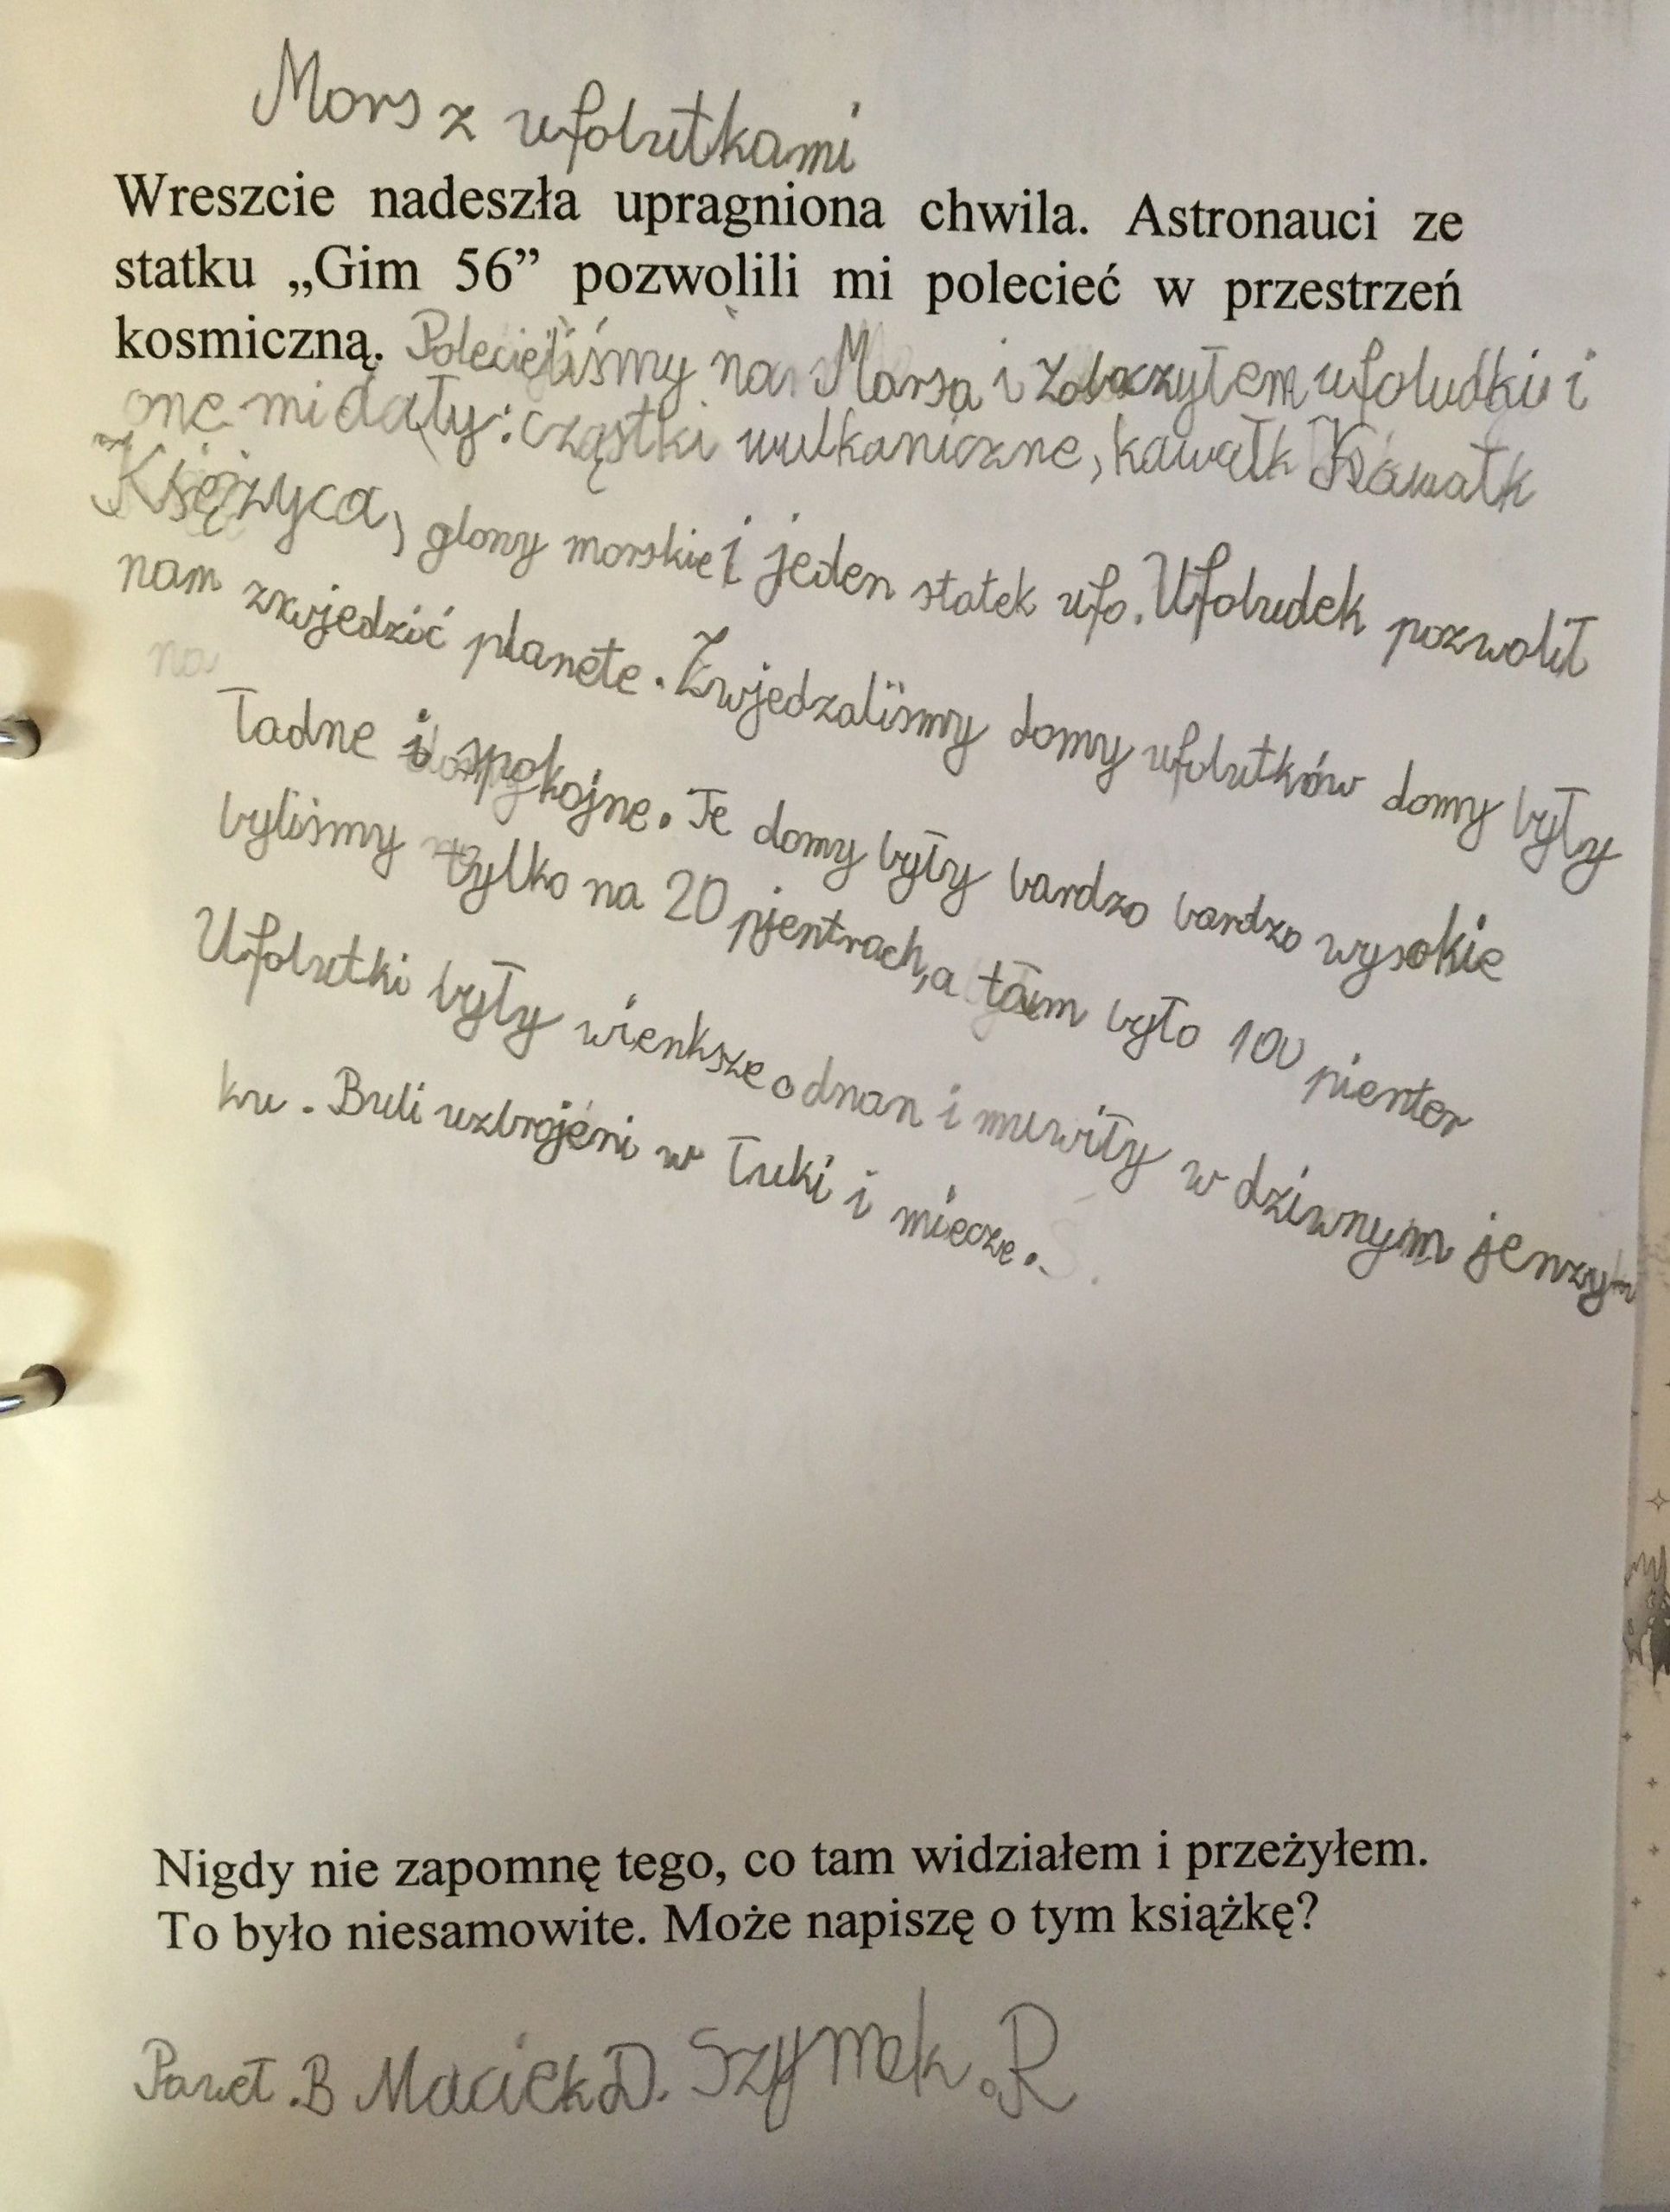 Mars z ufolutkami
Wreszcie nadeszła upragniona chwila. Astronauci ze
statku „Gim 56” pozwolili mi polecieć w przestrzeń
kosmiczną. Polecieliśmy na Marsa i zobaczyłem ufoludki i
one mi dały: cząstki wulkaniczne, kawałk Kawałk
Księżyca, glony morskie i jeden statek ufo. Ufoludek pozwolił
nam zwjedzić planete. Zwjedzaliśmy domy ufolutków domy były
na
ładne i spokojne. Te domy były bardzo bardzo wysokie
byliśmy tylko na 20 pjentrach, a tam było 100 pienter
Ufolutki były wienksze odnan i muwiły w dziwnym jenzy-
ku. Buli uzbrojeni w łuki i miecze.
Nigdy nie zapomnę tego, co tam widziałem i przeżyłem.
To było niesamowite. Może napiszę o tym książkę?
Paweł .B Maciek D. Szymek .R